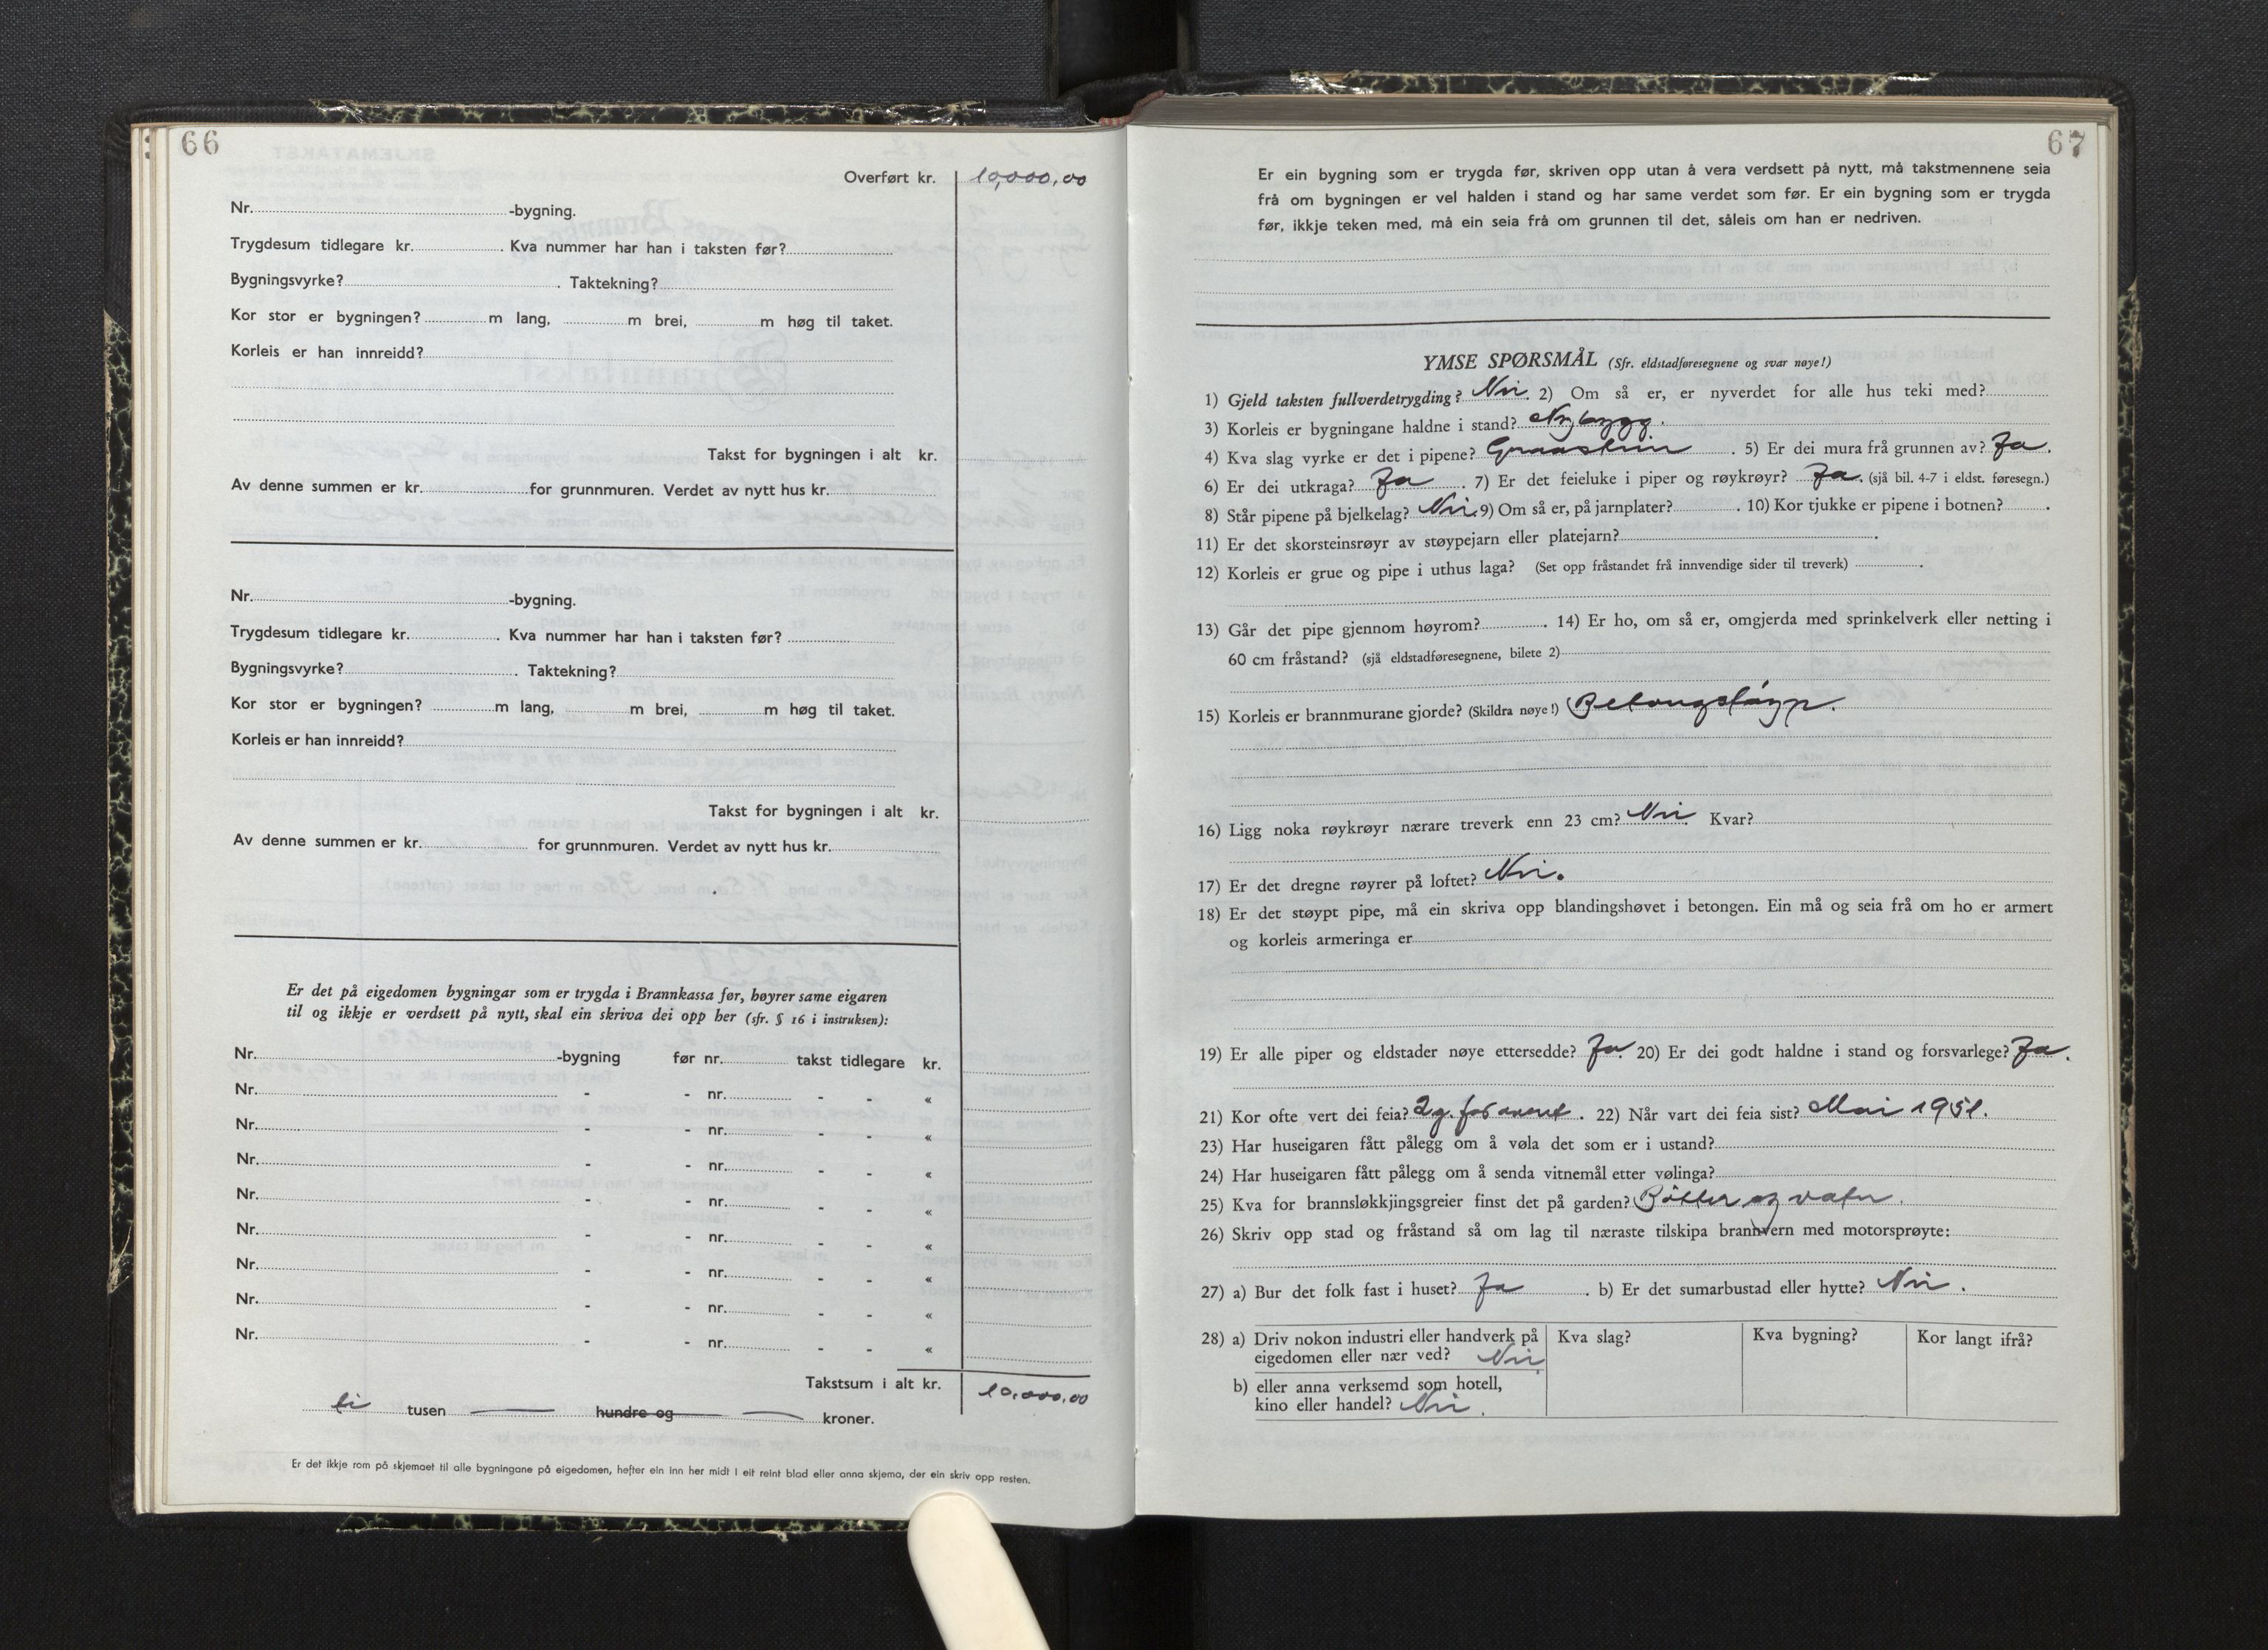 66
Overført kr. 10,000,00
Nr. -bygning.
Trygdesum tidlegare kr. . Kva nummer har han i taksten før?
Bygningsvyrke? . Taktekning?
Kor stor er bygningen? m lang, m brei, m høg til taket.
Korleis er han innreidd?
Takst for bygningen i alt kr.
Av denne summen er kr. for grunnmuren. Verdet av nytt hus kr.
Nr. -bygning.
Trygdesum tidlegare kr. . Kva nummer har han i taksten før?
Bygningsvyrke? . Taktekning?
Kor stor er bygningen? m lang, m brei, m høg til taket.
Korleis er han innreidd?
Takst for bygningen i alt kr.
Av denne summen er kr. for grunnmuren. Verdet av nytt hus kr.
Er det på eigedomen bygningar som er trygda i Brannkassa før, høyrer same eigaren
til og ikkje er verdsett på nytt, skal ein skriva dei opp her (sfr. § 16 i instruksen):
Nr. -bygning før nr. takst tidlegare kr.
Nr. - - nr. - - «
Nr. - - nr. - - «
Nr. - - nr. - - «
Nr. - - nr. - - «
Nr. - - nr. - - «
Nr. - - nr. - - «
Nr. - - nr. - - «
Nr. - - nr. - - «
Takstsum i alt kr. 10,000,00
ti tusen — hundre og — kroner.
Er det ikkje rom på skjemaet til alle bygningane på eigedomen, hefter ein inn her midt i eit reint blad eller anna skjema, der ein skriv opp resten.
67
Er ein bygning som er trygda før, skriven opp utan å vera verdsett på nytt, må takstmennene seia
frå om bygningen er vel halden i stand og har same verdet som før. Er ein bygning som er trygda
før, ikkje teken med, må ein seia frå om grunnen til det, såleis om han er nedriven.
YMSE SPØRSMÅL (Sfr. eldstadføresegnene og svar nøye!)
1) Gjeld taksten fullverdetrygding? Nei. 2) Om så er, er nyverdet for alle hus teki med?
3) Korleis er bygningane haldne i stand? Nybygg.
4) Kva slag vyrke er det i pipene? Graastein . 5) Er dei mura frå grunnen av? Ja.
6) Er dei utkraga? Ja . 7) Er det feieluke i piper og røykrøyr? Ja. (sjå bil. 4-7 i eldst. føresegn.)
8) Står pipene på bjelkelag? Nei. 9) Om så er, på jarnplater? . 10) Kor tjukke er pipene i botnen? .
11) Er det skorsteinsrøyr av støypejarn eller platejarn? .
12) Korleis er grue og pipe i uthus laga? (Set opp fråstandet frå innvendige sider til treverk) .
13) Går det pipe gjennom høyrom? . 14) Er ho, om så er, omgjerda med sprinkelverk eller netting i
60 cm fråstand? (sjå eldstadføresegnene, bilete 2)
15) Korleis er brannmurane gjorde? (Skildra nøye!) Betongstöyp.
16) Ligg noka røykrøyr nærare treverk enn 23 cm? Nei. Kvar?
17) Er det dregne røyrer på loftet? Nei.
18) Er det støypt pipe, må ein skriva opp blandingshøvet i betongen. Ein må og seia frå om ho er armert
og korleis armeringa er
19) Er alle piper og eldstader nøye ettersedde? Ja. 20) Er dei godt haldne i stand og forsvarlege? Ja.
21) Kor ofte vert dei feia? 2 g. for aaret . 22) Når vart dei feia sist? Mai 1951.
23) Har huseigaren fått pålegg om å vøla det som er i ustand?
24) Har huseigaren fått pålegg om å senda vitnemål etter vølinga?
25) Kva for brannsløkkjingsgreier finst det på garden? Bötter og vatn.
26) Skriv opp stad og fråstand så om lag til næraste tilskipa brannvern med motorsprøyte:
27) a) Bur det folk fast i huset? Ja . b) Er det sumarbustad eller hytte? Nei.
28) a) Driv nokon industri eller handverk på Kva slag? Kva bygning? Kor langt ifrå?
eigedomen eller nær ved? Nei
b) eller anna verksemd som hotell,
kino eller handel? Nei.